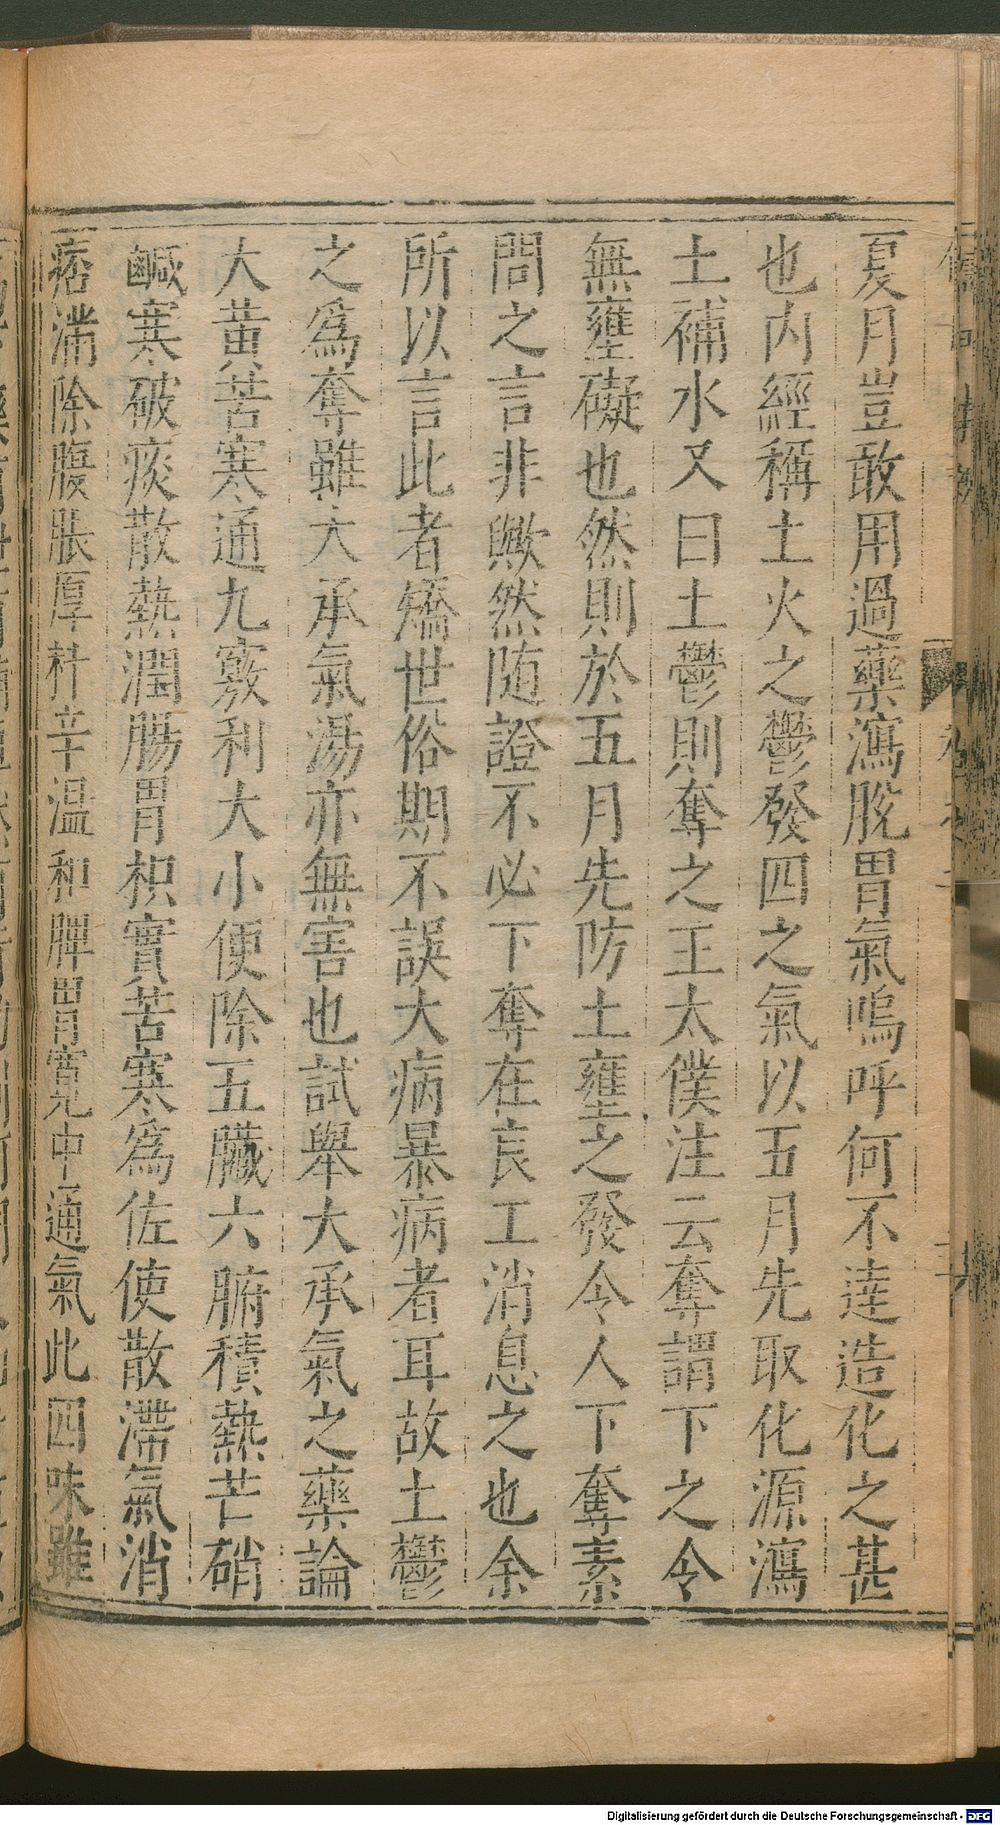 夏月豈敢用過藥瀉脫胃氣嗚呼何不達造化之甚
也內經稱土火之鬱發四之氣以五月先取化源瀉
土補水又曰土鬱則奪之王太僕注云奪謂下之令
無壅礙也然則於五月先防土壅之發令人下奪素
問之言非歟然随證不必下奪在良工消息之也余
所以言此者矯世俗期不誤大病暴病者耳故土鬱
之為奪雖大承氣湯亦無害也試舉大承氣之藥論
大黃苦寒通九竅利大小便除五臟六腑積熱芒硝
鹹寒破痰散熱潤腸胃枳實苦寒為佐使散滯氣消
痞滿除腹脹厚朴辛温和脾胃寬中通氣此四味雖
Digitalisierung gefördert durch die Deutsche Forschungsgemeinschaft - DFG